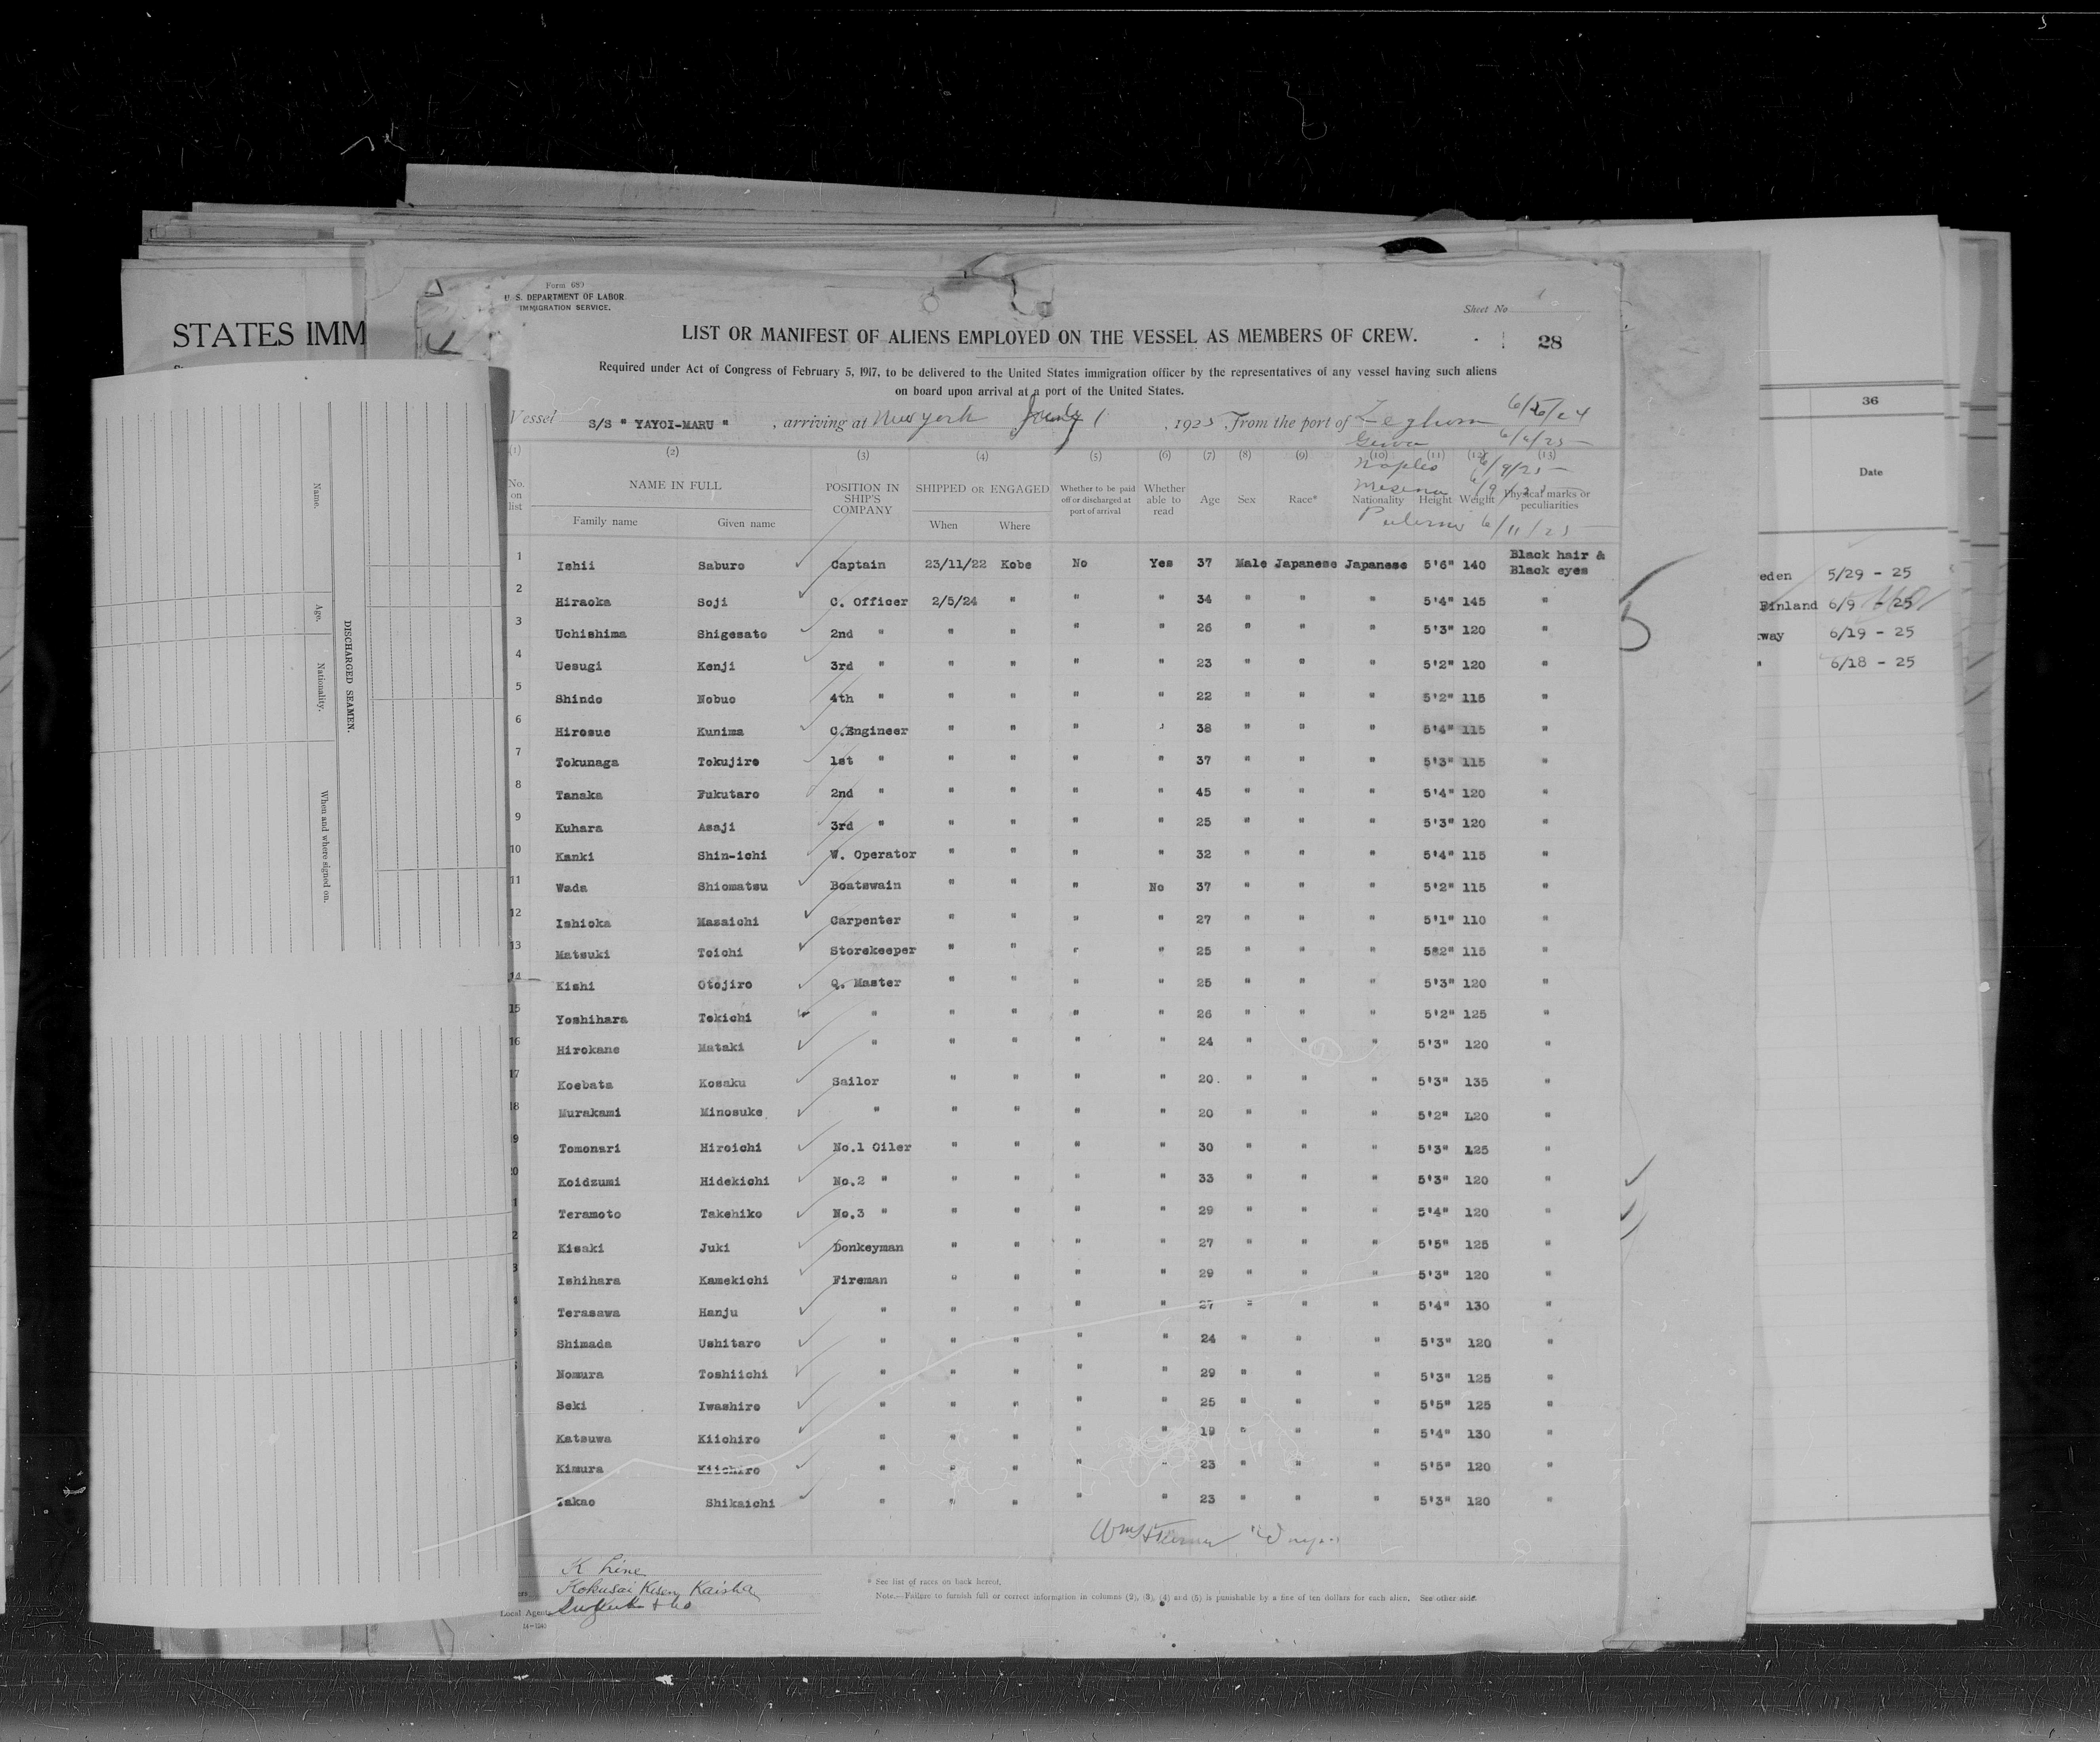 Form 689
U. S. DEPARTMENT OF LABOR
IMMIGRATION SERVICE.
Sheet No
STATES IMM
LIST OR MANIFEST OF ALIENS EMPLOYED ON THE VESSEL AS MEMBERS OF CREW.
28
Required under Act of Congress of February 5, 1917, to be delivered to the United States immigration officer by the representatives of any vessel having such aliens
on board upon arrival at a port of the United States.
Vessel S/S " YAYOI-MARU " , arriving at New York July 1 , 1925 , From the port of Leghorn
Genoa
Naples 6/9/25
Messina
Palermo 6/11/25
(1) (2) (3) (4) (5) (6) (7) (8) (9) (10) (11) (12) (13)
No. on list NAME IN FULL POSITION IN SHIP'S COMPANY SHIPPED OR ENGAGED Whether to be paid off or discharged at port of arrival Whether able to read Age Sex Race* Nationality Height Weight Physical marks or peculiarities
Family name Given name When Where
1 Ishii Saburo Captain 23/11/22 Kobe No Yes 37 Male Japanese Japanese 5'6" 140 Black hair & Black eyes
2 Hiraoka Soji C. Officer 2/5/24 " " " 34 " " " 5'4" 145 "
3 Uchishima Shigesato 2nd " " " " " 26 " " " 5'3" 120 "
4 Uesugi Kenji 3rd " " " " " 23 " " " 5'2" 120 "
5 Shindo Nobuo 4th " " " " " 22 " " " 5'2" 115 "
6 Hirosue Kunima C.Engineer " " " " 38 " " " 5'4" 115 "
7 Tokunaga Tokujiro 1st " " " " " 37 " " " 5'3" 115 "
8 Tanaka Fukutaro 2nd " " " " " 45 " " " 5'4" 120 "
9 Kuhara Asaji 3rd " " " " " 25 " " " 5'3" 120 "
10 Kanki Shin-ichi W. Operator " " " " 32 " " " 5'4" 115 "
11 Wada Shiomatsu Boatswain " " " No 37 " " " 5'2" 115 "
12 Ishioka Masaichi Carpenter " " " " 27 " " " 5'1" 110 "
13 Matsuki Toichi Storekeeper " " " " 25 " " " 5"2" 115 "
14 Kishi Otojiro Q. Master " " " " 25 " " " 5'3" 120 "
15 Yoshihara Tokichi " " " " " 26 " " " 5'2" 125 "
16 Hirokane Mataki " " " " " 24 " " " 5'3" 120 "
17 Koebata Kosaku Sailor " " " " 20. " " " 5'3" 135 "
18 Murakami Minosuke " " " " " 20 " " " 5'2" 120 "
9 Tomonari Hiroichi No.1 Oiler " " " " 30 " " " 5'3" 125 "
20 Koidzumi Hidekichi No.2 " " " " " 33 " " " 5'3" 120 "
1 Teramoto Takehiko No.3 " " " " " 29 " " " 5'4" 120 "
2 Kisaki Juki Donkeyman " " " " 27 " " " 5'5" 125 "
3 Ishihara Kamekichi Fireman " " " " 29 " " " 5'3" 120 "
4 Terasawa Hanju " " " " " 27 " " " 5'4" 130 "
Shimada Ushitaro " " " " " 24 " " " 5'3" 120 "
Nomura Toshiichi " " " " " 29 " " " 5'3" 125 "
Seki Iwashiro " " " " " 25 " " " 5'5" 125 "
Katsuwa Kiichiro " " " " " 19 " " " 5'4" 130 "
Kimura Kiichiro " " " " " 23 " " " 5'5" 120 "
Takao Shikaichi " " " " " 23 " " " 5'3" 120 "
K Line
Kokusai Kisen Kaisha
Local Agents
* See list of races on back hereof.
Note.—Failure to furnish full or correct information in columns (2), (3), (4) and (5) is punishable by a fine of ten dollars for each alien. See other side.
Name.
Age.
Nationality.
When and where signed on.
DISCHARGED SEAMEN.
36
Date
eden 5/29 - 25
Finland 6/9 - 25
way 6/19 - 25
" 6/18 - 25